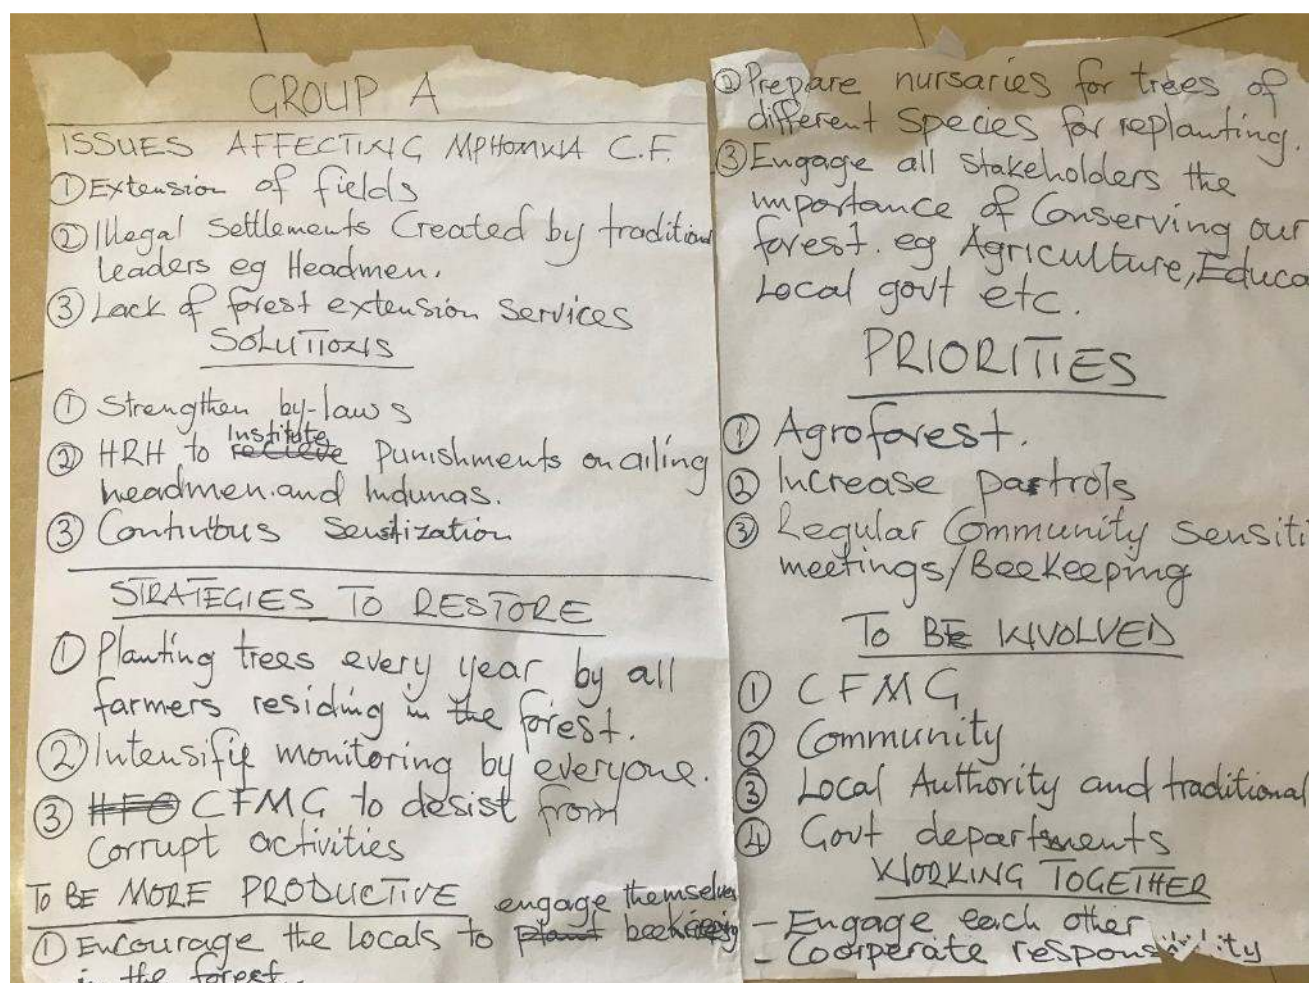 GROUP A
ISSUES AFFECTING MPHOMWA C.F.
① Extension of fields
② Illegal Settlements Created by tradition
leaders eg Headmen.
③ Lack of forest extension services
SOLUTIONS
① Strengthen by-laws
Institute
② HRH to recieve Punishments on ailing
headmen and Indunas.
③ Continuous Senstization
STRATEGIES TO RESTORE
① Planting trees every year by all
farmers residing in the forest.
② Intensify monitoring by everyone.
③ HFO CFMG to desist from
Corrupt activities
TO BE MORE PRODUCTIVE engage themselves
① Encourage the locals to plant beekeeping
in the forest.
② Prepare nursaries for trees of
different Species for replanting.
③ Engage all stakeholders the
importance of Conserving our
forest. eg Agriculture, Educa
Local govt etc.
PRIORITIES
① Agroforest.
② Increase partrols
③ Regular Community Sensiti
meetings/BeeKeeping
TO BE INVOLVED
① CFMG
② Community
③ Local Authority and traditional
④ Govt departments
WORKING TOGETHER
- Engage each other
- Coorperate responsibility